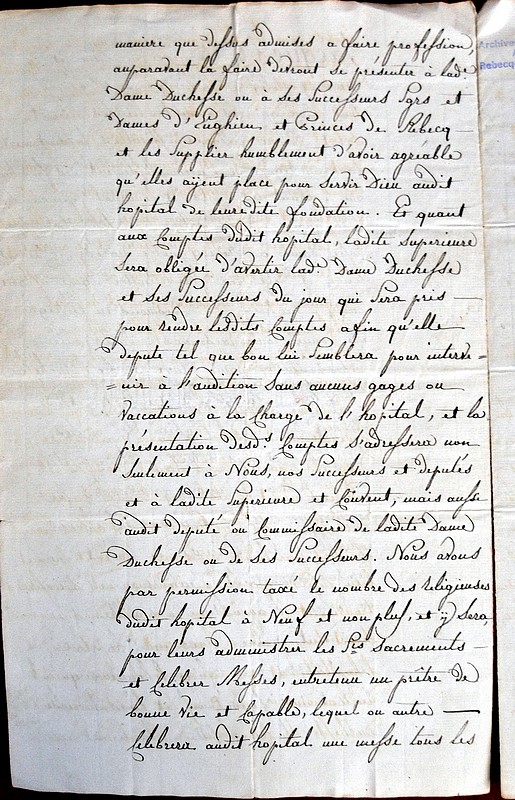 maniere que dessus admises a faire profession,
auparavant la faire devront se présenter à lade
Dame Duchesse ou à ses Successeurs Sgrs et
Dames d'Enghien et Princes de Rebecq —
et les Supplier humblement d'avoir agréable
qu'elles aÿent place pour servir Dieu audit
hopital de leuredite fondation. Et quant
aux Comptes dudit hopital, ladite Superieure
Sera obligée d'avertir lad: Dame Duchesse
et Ses Successeurs du jour qui Sera pris —
pour rendre lesdits Comptes afin qu'elle
depute tel que bon lui Semblera pour interve=
=nir à l'audition Sans aucuns gages ou
vaccations à la Charge de l'hopital, et la
présentation desds Comptes s'adressera non
Seulement à Nous, nos Successeurs et deputés
et à ladite Superieure et Couvent, mais aussi
audit deputé ou Commissaire de ladite Dame
Duchesse ou de Ses Successeurs. Nous avons
par permission taxé le nombre des religieuses
dudit hopital à Neuf et non plus, et ÿ Sera,
pour leurs administrer les Sts Sacrements —
et Celebrer Messes, entretenu un prêtre de
bonne vie et Capable, lequel ou autre —
Celebrera audit hopital une messe tous les
Archive
Rebecq